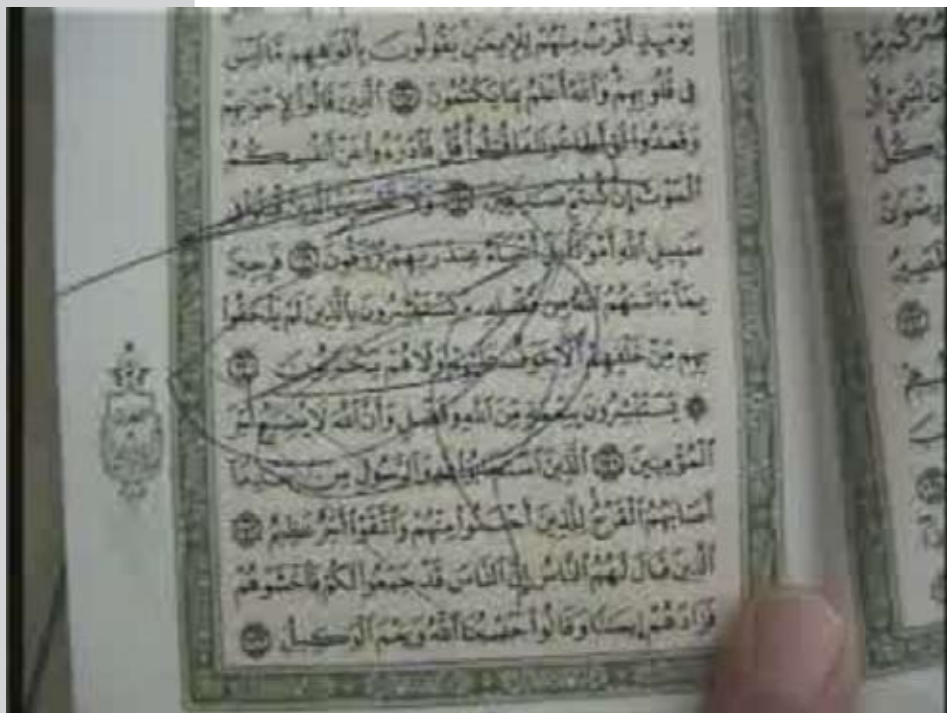 يَوْمَئِذٍ أَقْرَبُ مِنْهُمْ لِلْإِيمَٰنِ يَقُولُونَ بِأَفْوَٰهِهِم مَّا لَيْسَ
فِى قُلُوبِهِمْ وَٱللَّهُ أَعْلَمُ بِمَا يَكْتُمُونَ ٱلَّذِينَ قَالُوا۟ لِإِخْوَٰنِهِمْ
وَقَعَدُوا۟ لَوْ أَطَاعُونَا مَا قُتِلُوا۟ قُلْ فَٱدْرَءُوا۟ عَنْ أَنفُسِكُمُ
ٱلْمَوْتَ إِن كُنتُمْ صَٰدِقِينَ وَلَا تَحْسَبَنَّ ٱلَّذِينَ قُتِلُوا۟ فِى
سَبِيلِ ٱللَّهِ أَمْوَٰتًۢا بَلْ أَحْيَآءٌ عِندَ رَبِّهِمْ يُرْزَقُونَ فَرِحِينَ
بِمَآ ءَاتَىٰهُمُ ٱللَّهُ مِن فَضْلِهِۦ وَيَسْتَبْشِرُونَ بِٱلَّذِينَ لَمْ يَلْحَقُوا۟
بِهِم مِّنْ خَلْفِهِمْ أَلَّا خَوْفٌ عَلَيْهِمْ وَلَا هُمْ يَحْزَنُونَ
يَسْتَبْشِرُونَ بِنِعْمَةٍ مِّنَ ٱللَّهِ وَفَضْلٍ وَأَنَّ ٱللَّهَ لَا يُضِيعُ أَجْرَ
ٱلْمُؤْمِنِينَ ٱلَّذِينَ ٱسْتَجَابُوا۟ لِلَّهِ وَٱلرَّسُولِ مِنۢ بَعْدِ مَآ
أَصَابَهُمُ ٱلْقَرْحُ لِلَّذِينَ أَحْسَنُوا۟ مِنْهُمْ وَٱتَّقَوْا۟ أَجْرٌ عَظِيمٌ
ٱلَّذِينَ قَالَ لَهُمُ ٱلنَّاسُ إِنَّ ٱلنَّاسَ قَدْ جَمَعُوا۟ لَكُمْ فَٱخْشَوْهُمْ
فَزَادَهُمْ إِيمَٰنًا وَقَالُوا۟ حَسْبُنَا ٱللَّهُ وَنِعْمَ ٱلْوَكِيلُ